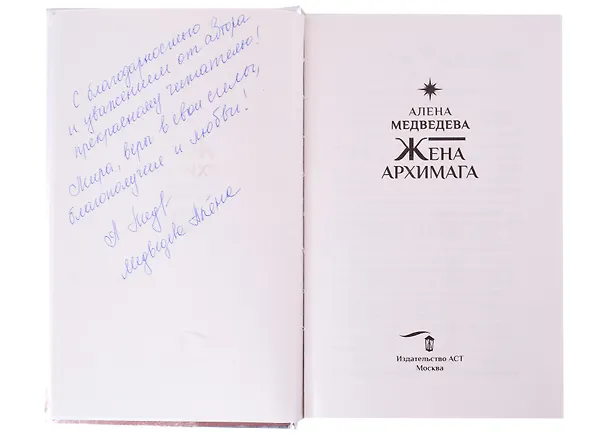 С благодарностью
и уважением от автора
прекрасному читателю!
Мира, веры в свои силы,
благополучия и любви!
А Медв
Медведева Алёна
АЛЕНА
МЕДВЕДЕВА
ЖЕНА
АРХИМАГА
Издательство АСТ
Москва